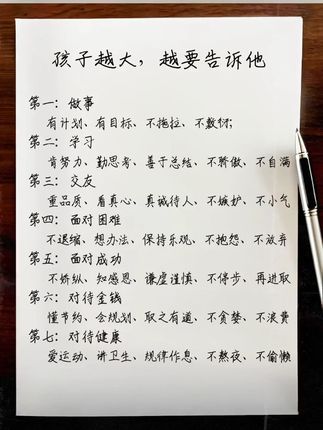 孩子越大，越要告诉他
第一：做事
有计划、有目标、不拖拉、不敷衍；
第二：学习
肯努力、勤思考、善于总结、不骄傲、不自满
第三：交友
重品质、看真心、真诚待人、不嫉妒、不小气
第四：面对困难
不退缩、想办法、保持乐观、不抱怨、不放弃
第五：面对成功
不娇纵、知感恩、谦虚谨慎、不停步、再进取
第六：对待金钱
懂节约、会规划、取之有道、不贪婪、不浪费
第七：对待健康
爱运动、讲卫生、规律作息、不熬夜、不偷懒